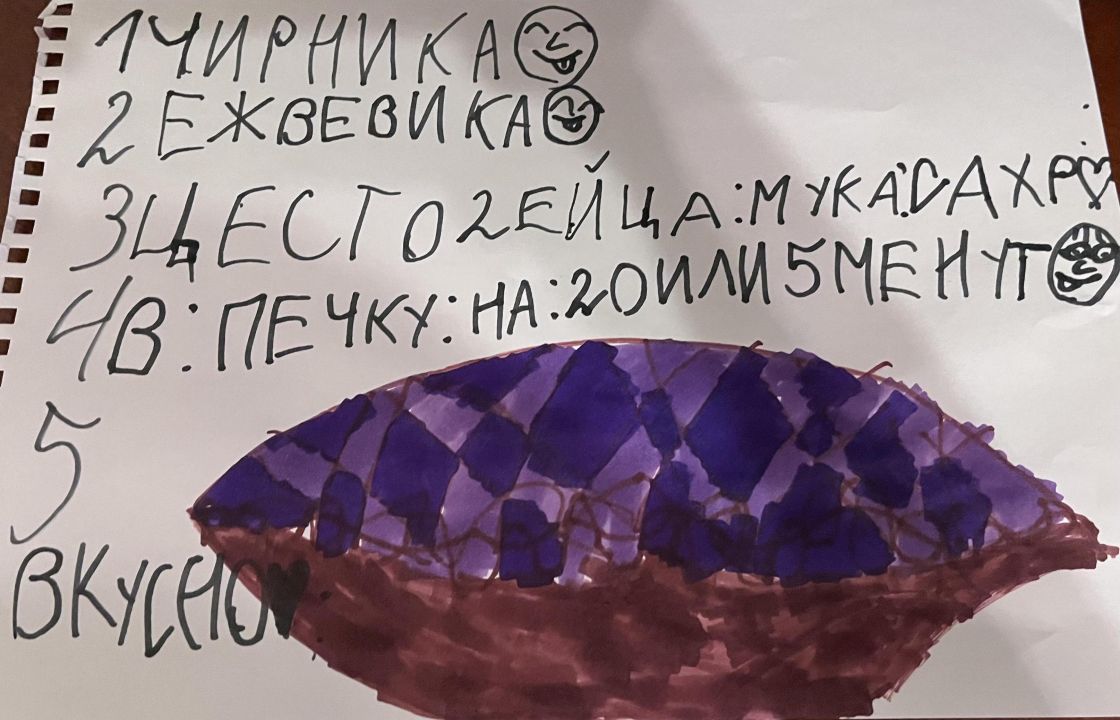 1 ЧИРНИКА
2 ЕЖВЕВИКА
3 ЦЕСТО 2 ЕЙЦА: МУКА: САХР
4 В: ПЕЧКУ: НА: 20 ИЛИ 5 МЕНУТ
5
ВКУСНО